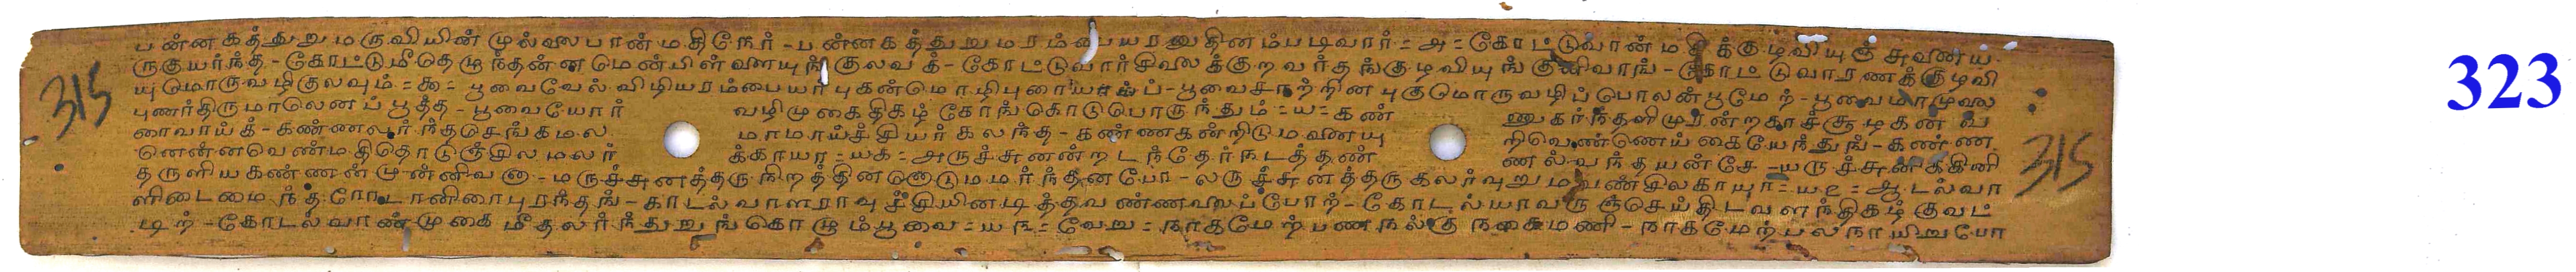 பன்னகத்துறு மருவியின் முல்லை பான்மதிநேர் - பன்னகத்துறு மரம்பையரனுதினம்படிவார் = அ = கோட்டுவான் மதிக்குழவியுஞ் சுவணய
ருகுயர்ந்த - கோட்டுமீதெழுந்தன்னமென்பிள்ளையுங் குலவக் - கோட்டுவார்சிலைக்குறவர்தங்குழவியுங் குனிவாங் - கோட்டுவாரணக்குழவி
யுமொருவழிகுலவும் = ௯ = பூவைவேல் விழியரம்பையர் புகன்மொழிபுரையப் - பூவைசாற்றின புகுமொருவழிப் பொலன்பூமேற் - பூவைமாமுலை
புணர்திருமாலெனப் பூத்த - பூவையோர் வழிமுகைதிகழ் கோங்கொடு பொருந்தும் = ய = கண் ணுகர்ந்தளிமுரன்றகாச்சூழகன்வ
னைவாய்க் - கண்ணலர்ந்தசெங்கமல மாமாய்ச்சியர் கலந்த - கண்ணகன்றிடுமனையு நிவெண்ணெய் கையேந்துங் - கண்ண
னென்னவெண்மதிதொடுஞ்சில மலர் க்காயா = யக = அருச்சுனன்றடந்தேர்நடத்தண் ணல்வந்தயன்சே - யருச்சுனக்கினி
தருளியகண்ணன்முன்னிவன - மருச்சுனத்தருநிறத்தினனொடுமமர்ந்தனபோ - லருச்சுனத்தருகலர்வுறுமவண்சிலகாயா = ய௨ = ஆடல்வா
ளிடைமைந்தரோடானிரைபுரந்தங் - காடல்வாளராவுச்சியினடித்தவண்ணலைப்போற் - கோடல்யாவருஞ்செய்திடவளந்திகழ் குவட்
டிற் - கோடல்வாண்முகை மீதலர்ந்துறுங்கொழும்பூவை = ய௩ = வேறு = நாகமேற் பணநல்கு நகைமணி - நாகமேற்பலநாயிறுபோ
315
315
323